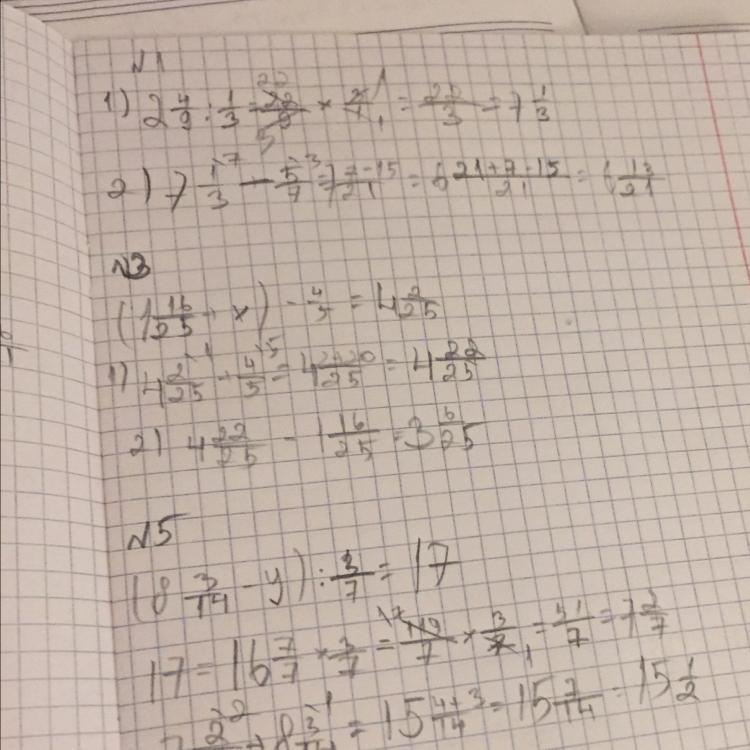 №1
1) 2 4/9 : 1/3 = 22/9 × 3/1 = 22/3 = 7 1/3
2) 7 1/3 - 5/7 = 7 7-15/21 = 6 21+7-15/21 = 6 13/21
№3
(1 16/25 + x) - 4/5 = 4 2/25
1) 4 2/25 + 4/5 = 4 2+20/25 = 4 22/25
2) 4 22/25 - 1 16/25 = 3 6/25
№5
(8 3/14 - y) : 3/7 = 17
17 = 16 7/7 × 3/7 = 119/7 × 3/7 = 51/7 = 7 2/7
2 + 8 3/14 = 15 4+3/14 = 15 7/14 = 15 1/2